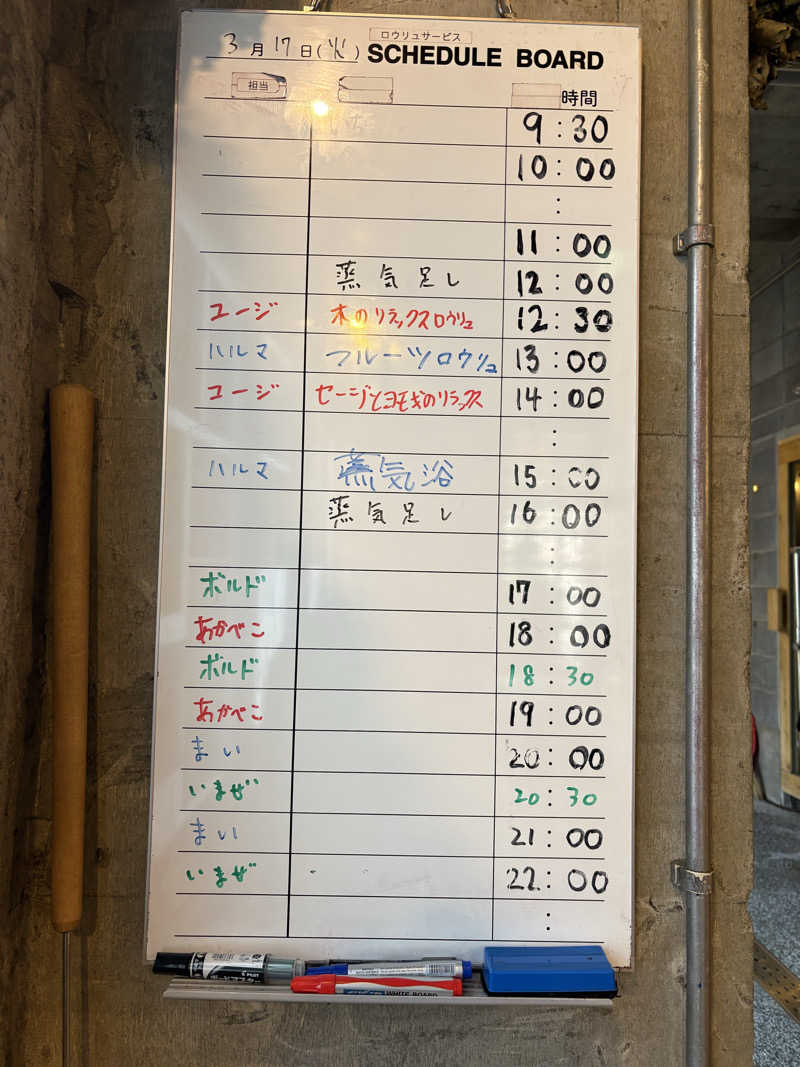 3月17日(火) ロウリュサービス SCHEDULE BOARD
担当 時間
9:30
10:00
:
11:00
蒸気足し 12:00
ユージ 木のリラックスロウリュ 12:30
ハルマ フルーツロウリュ 13:00
ユージ セージとヨモギのリラックス 14:00
:
ハルマ 蒸気浴 15:00
蒸気足し 16:00
:
ボルド 17:00
あかべこ 18:00
ボルド 18:30
あかべこ 19:00
まい 20:00
いまぜ 20:30
まい 21:00
いまぜ 22:00
:
PILOT
WHITE BOARD